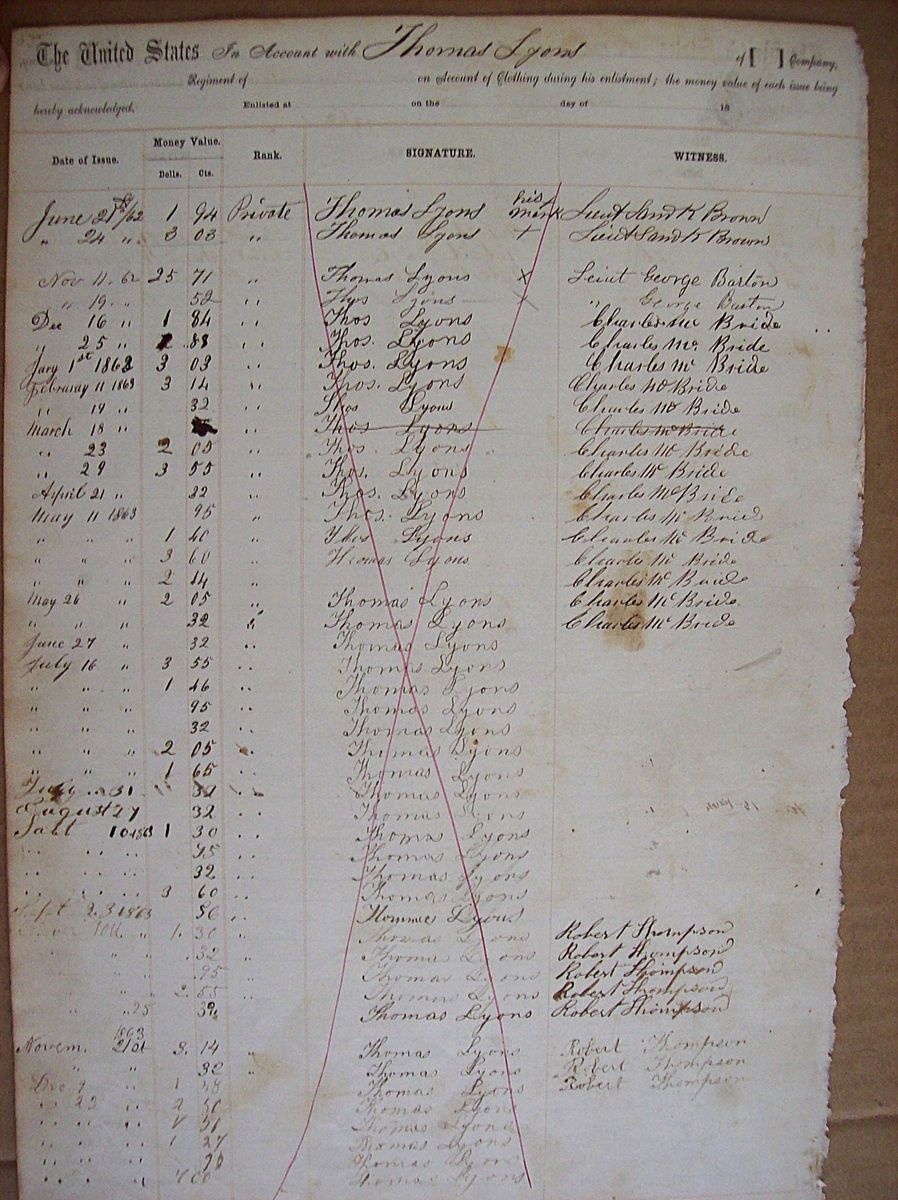 The United States In Account with Thomas Lyons of [ ] Company,
Regiment of on Account of Clothing during his enlistment; the money value of each issue being
hereby acknowledged. Enlisted at on the day of 18
Date of Issue. Money Value. Rank. SIGNATURE. WITNESS.
Dolls. Cts.
June 21st/62 1 94 Private Thomas Lyons his mark Lieut Sand K Brown
" 24 " 3 03 " Thomas Lyons + Lieut Sand K Brown
Nov 11. 62 25 71 " Thomas Lyons X Leiut George Barton
" 19. " 52 " Thos Lyons X " George Barton
Dec 16 " 1 84 " Thos Lyons Charles Mc Bride
" 25 " 88 " Thos. Lyons Charles Mc Bride
Jary 1st 1863 3 03 " Thos. Lyons Charles Mc Bride
February 11 1863 3 14 " Thos. Lyons Charles Mc Bride
" 19 " 32 " Thos Lyons Charles Mc Bride
March 18 " " Thos Lyons Charles Mc Bride
" 23 2 05 " Thos. Lyons Charles Mc Bride
" 29 " 3 55 " Thos. Lyons Charles Mc Bride
April 21 " 32 " Thos. Lyons Charles Mc Bride
May 11 1863 95 " Thos. Lyons Charles Mc Bride
" " " 1 40 " Thos Lyons Charles Mc Bride
" " " 3 60 " Thomas Lyons Charles Mc Bride
" " " 2 14 " Charles Mc Bride
May 26 " 2 05 " Thomas Lyons Charles Mc Bride
" " " 32 " Thomas Lyons Charles Mc Bride
June 27 " 32 " Thomas Lyons
July 16 " 3 55 " Thomas Lyons
" " " 1 46 " Thomas Lyons
" " " 95 " Thomas Lyons
" " " 32 " Thomas Lyons
" " " 2 05 " Thomas Lyons
" " " 1 65 " Thomas Lyons
July " 31 " Thomas Lyons
August 27 32 " Thomas Lyons
Sabt 10 1863 1 30 " Thomas Lyons
" " " 95 " Thomas Lyons
" " " 32 " Thomas Lyons
" " " 3 60 " Thomas Lyons
Sept 23 1863 50 " Thommas Lyons
" 1. 30 Thomas Lyons Robert Thompson
" " .32 " Thomas Lyons Robert Thompson
" " .95 " Thomas Lyons Robert Thompson
" 2. 55 " Thomas Lyons Robert Thompson
" " 25 32 Thomas Lyons Robert Thompson
1863
Novem. 21st 3. 14 " Thomas Lyons Robert Thompson
" " 32 " Thomas Lyons Robert Thompson
Dec 9 1 Thomas Lyons Robert Thompson
" 22 " 2 50 Thomas Lyons
" " " Thomas Lyons
" " " 1 27 Thomas Lyons
" " " Thomas Lyons
" " " Thomas Lyons